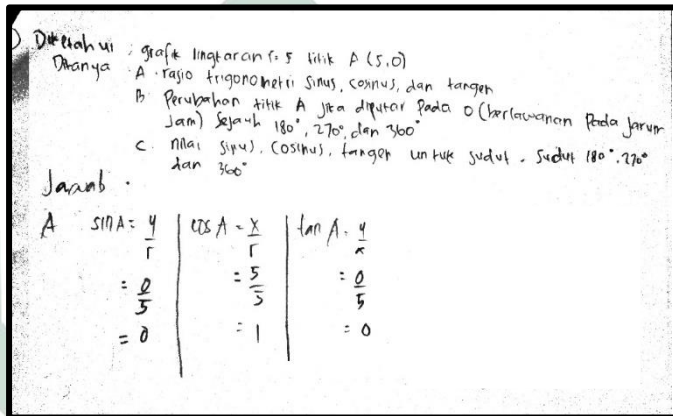 Diketahui : grafik lingkaran r = 5 titik A (5,0)
Ditanya A. rasio trigonometri sinus, cosinus, dan tangen
B Perubahan titik A jika diputar Pada O (berlawanan Pada jarum
Jam) sejauh 180°, 270°, dan 360°
C. nilai sinus, cosinus, tangen untuk sudut - sudut 180°, 270°
dan 360°
Jawab .
A sin A = y/r cos A = x/r tan A = y/x
= 0/5 = 5/5 = 0/5
= 0 = 1 = 0